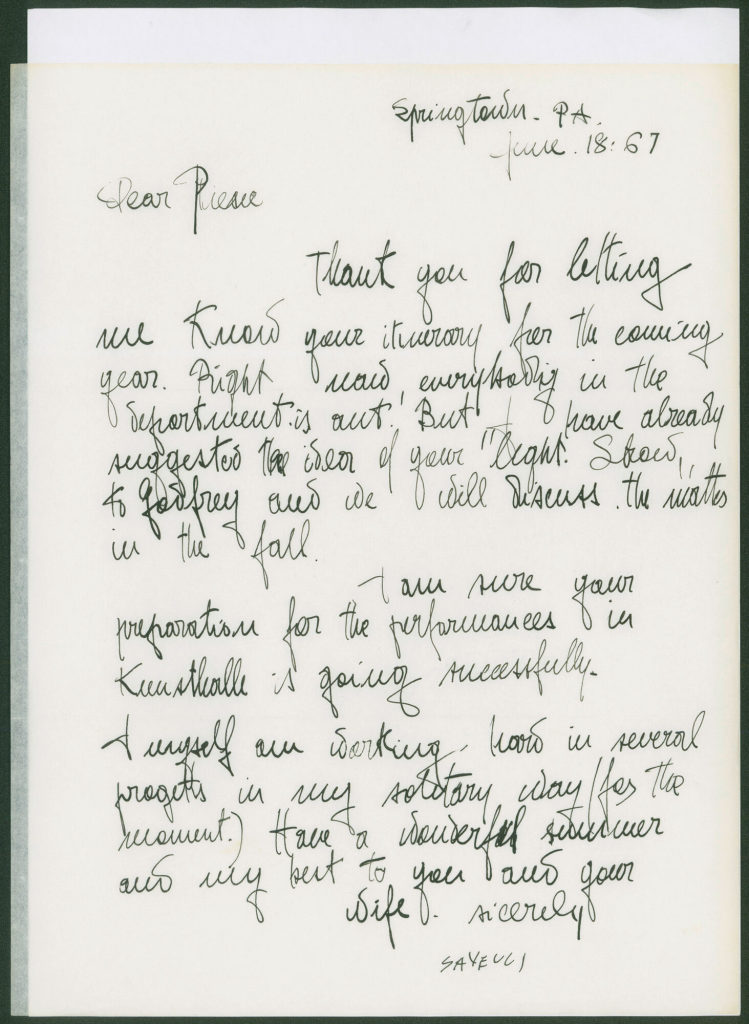 Springtown. PA.
June. 18: 67
Dear Piene
Thank you for letting
me Know your itinerary for the coming
year. Right now, everybody in the
department is out. But I have already
suggested the idea of your "Light. Show"
to Godfrey and we will discuss. the matter
in the fall.
I am sure your
preparation for the performances in
Kunsthalle is going successfully.
I myself am working. hard in several
progetts in my solitary way (for the
moment.) Have a wonderful summer
and my best to you and your
wife. sicerely